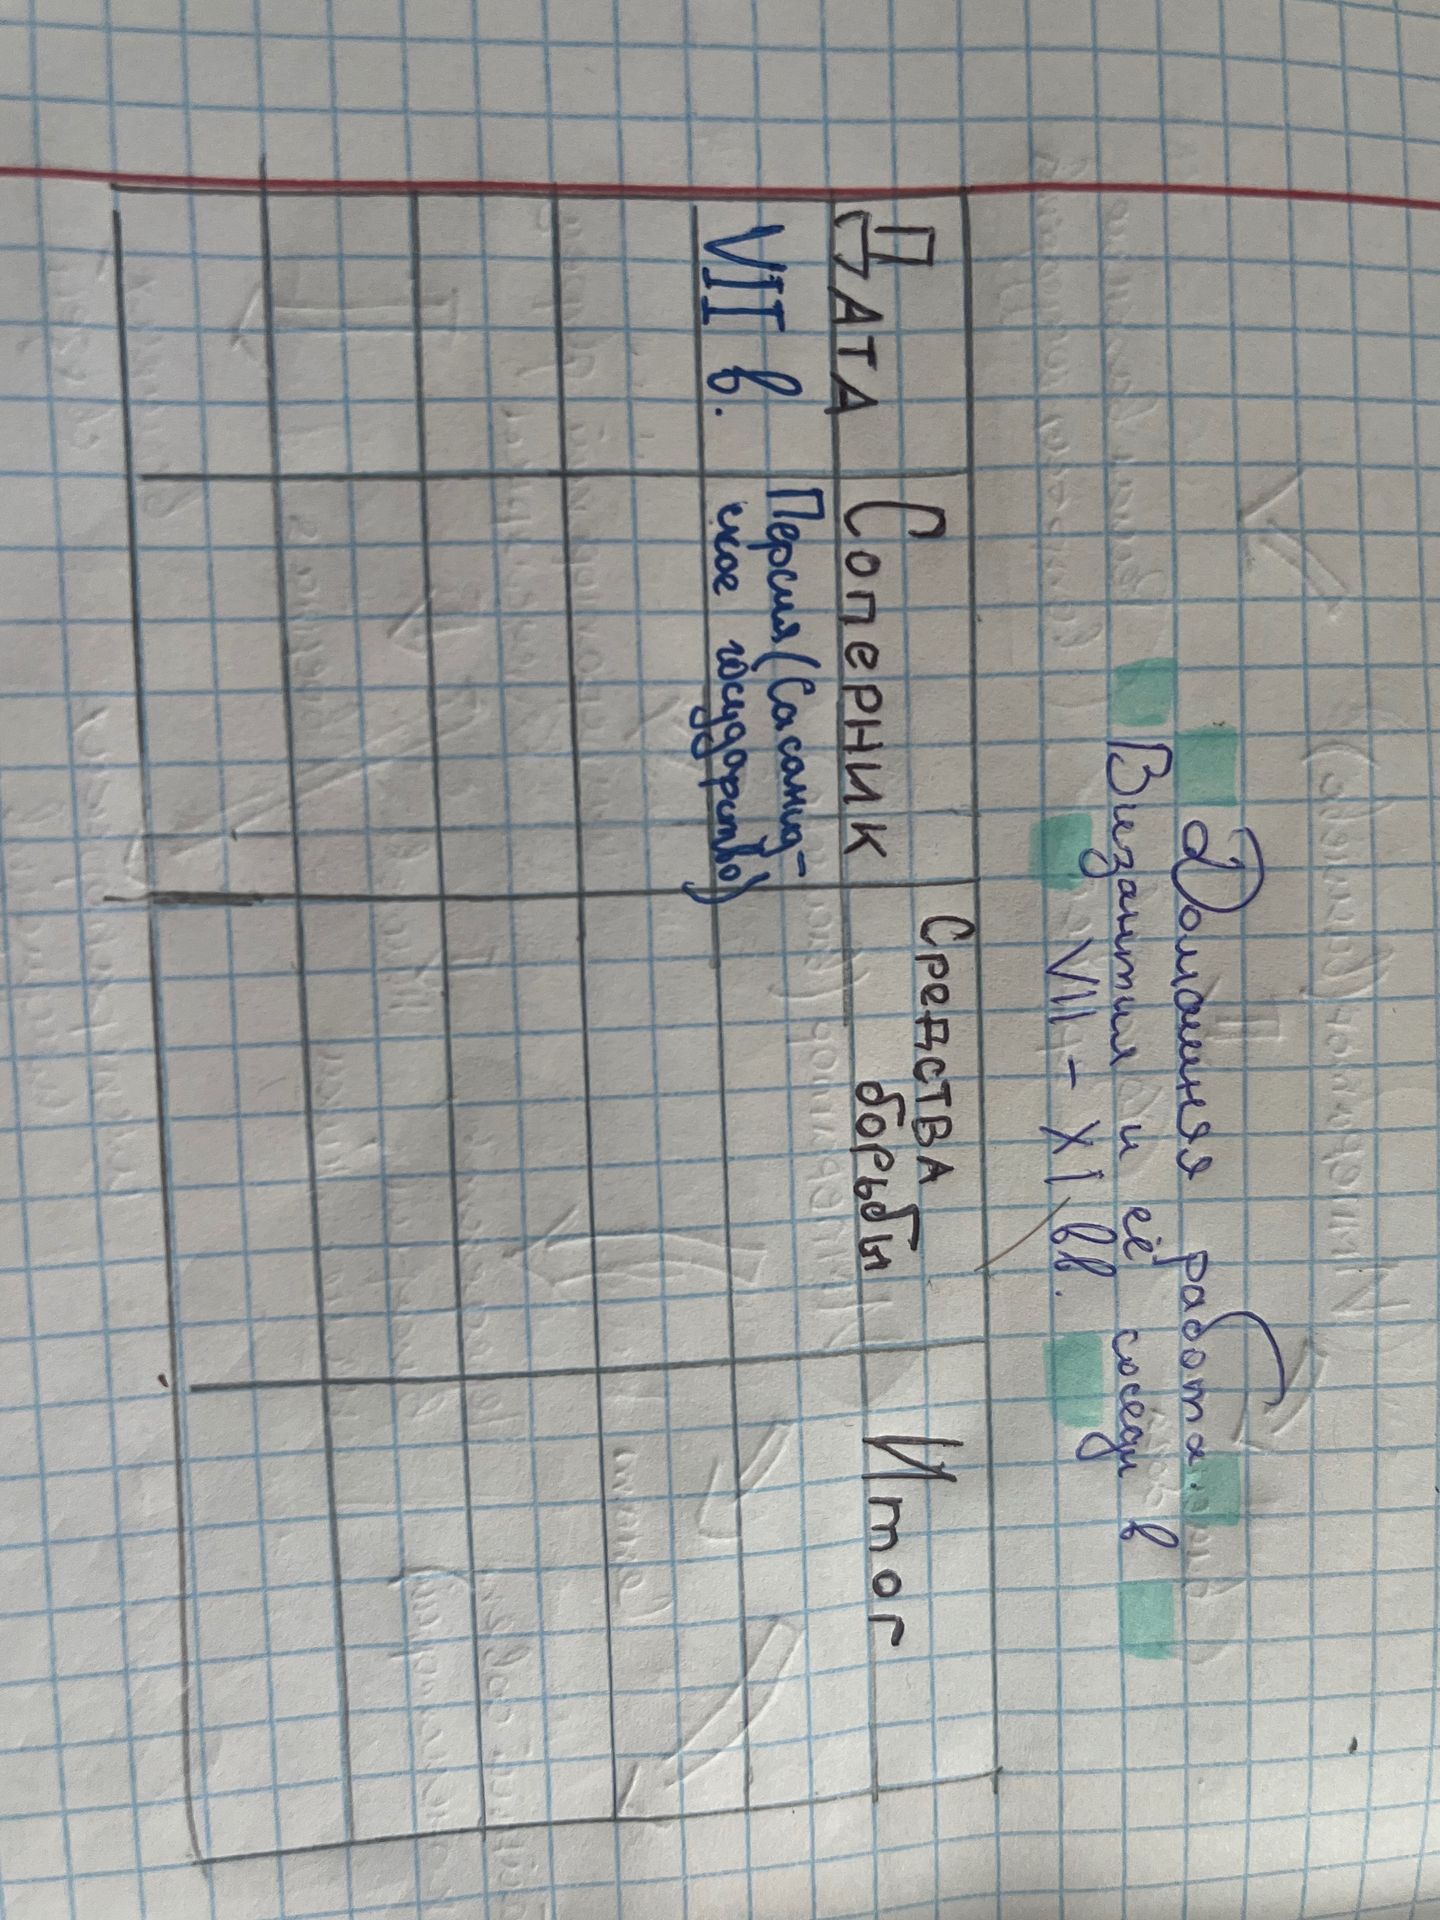 Домашняя работа.
Византия и её соседи в
VII - XI вв.
Дата Соперник Средства борьбы Итог
VII в. Персия (Сасанид-
ское государство)